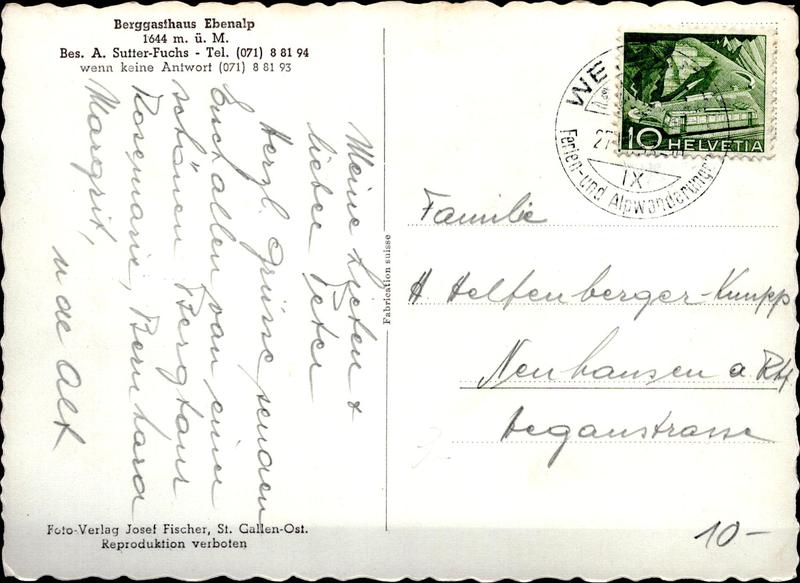 Berggasthaus Ebenalp
1644 m. ü. M.
Bes. A. Sutter-Fuchs - Tel. (071) 8 81 94
wenn keine Antwort (071) 8 81 93
Meine Lieben &
lieber Peter
Herzl. Grüsse senden
Euch allen von einer
schönen Bergtour
Rosemarie, Bernhard
Margrit,
u de Alt
Foto-Verlag Josef Fischer, St. Gallen-Ost.
Reproduktion verboten
Fabrication suisse
10 HELVETIA
WE
27
IX
Ferien- und Alpwanderungen
Familie
H. Helfenberger-Knupp
Neuhausen a Rhf
Deganstrasse
10-